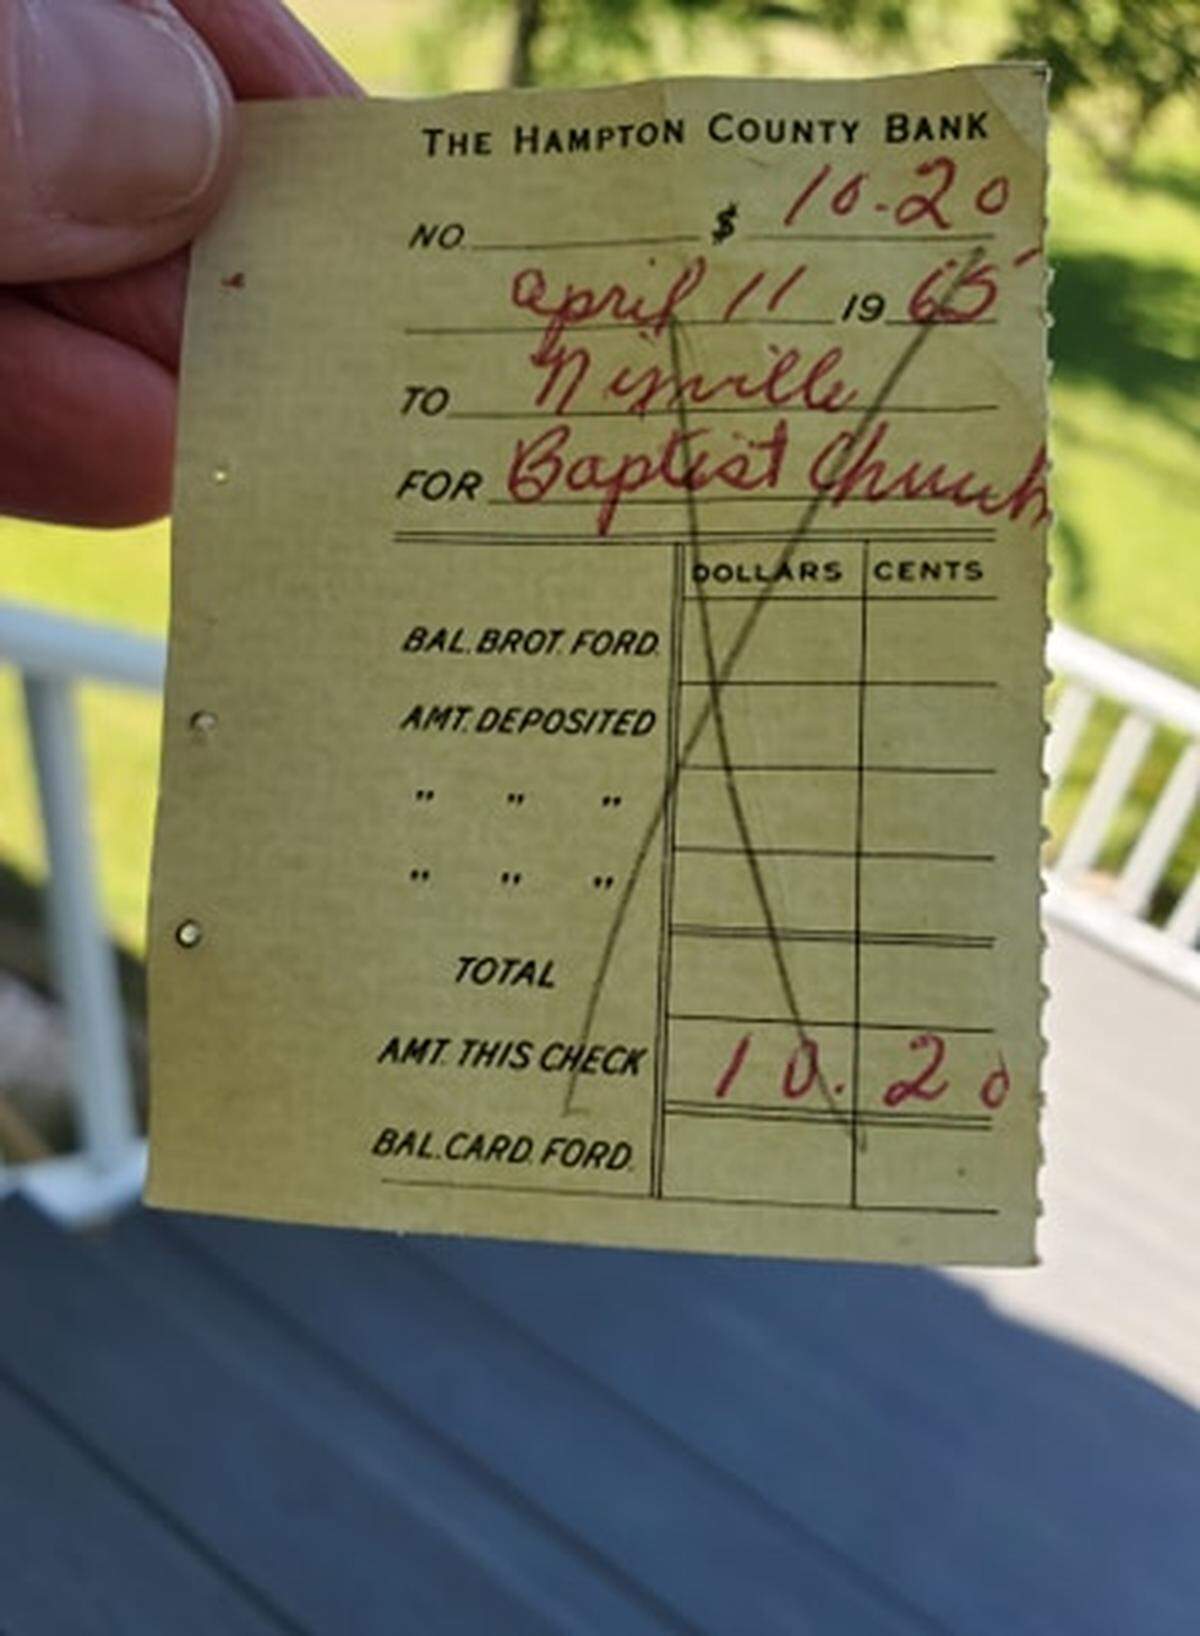 THE HAMPTON COUNTY BANK
NO. $ 10.20
April 11 19 65
TO Nixville
FOR Baptist Church
DOLLARS CENTS
BAL. BROT. FORD.
AMT. DEPOSITED
" " "
" " "
TOTAL
AMT. THIS CHECK 10. 20
BAL. CARD. FORD.